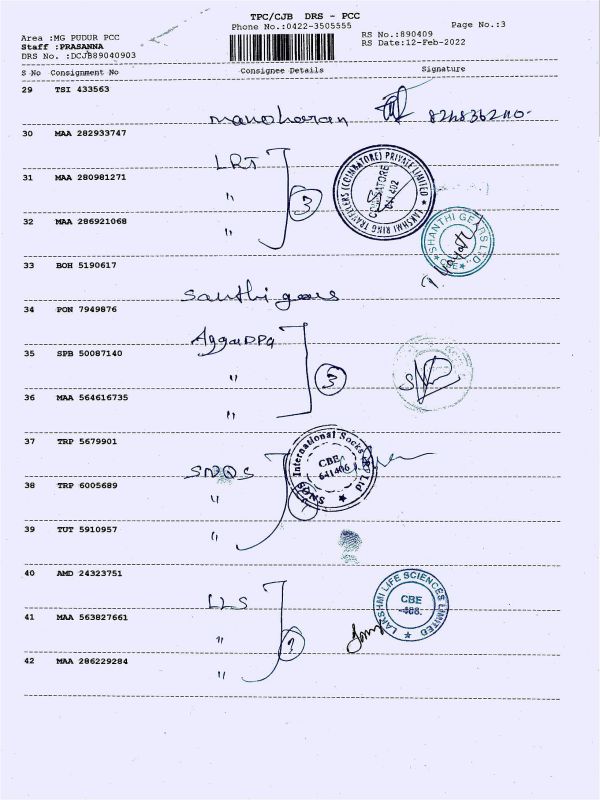 TPC/CJB DRS - PCC
Phone No.:0422-3505555
Page No.:3
Area :MG PUDUR PCC
Staff :PRASANNA
DRS No. :DCJB89040903
RS No.:890409
RS Date:12-Feb-2022
S No Consignment No Consignee Details Signature
29 TSI 433563
manoharan
30 MAA 282933747
LRT
31 MAA 280981271
"
3
LAKSHMI RING TRAVELLERS (COIMBATORE) PRIVATE LIMITED
COIMBATORE
641 402
32 MAA 286921068
"
SHANTHI GEARS LTD.
CBE
33 BOH 5190617
Santhi gears
34 PON 7949876
35 SPB 50087140
"
3
36 MAA 564616735
"
37 TRP 5679901
SNQS
SNQS International Socks (P) Ltd
CBE
641406
38 TRP 6005689
"
39 TUT 5910957
"
40 AMD 24323751
LLS
LAKSHMI LIFE SCIENCES LIMITED
CBE
41 MAA 563827661
"
42 MAA 286229284
"